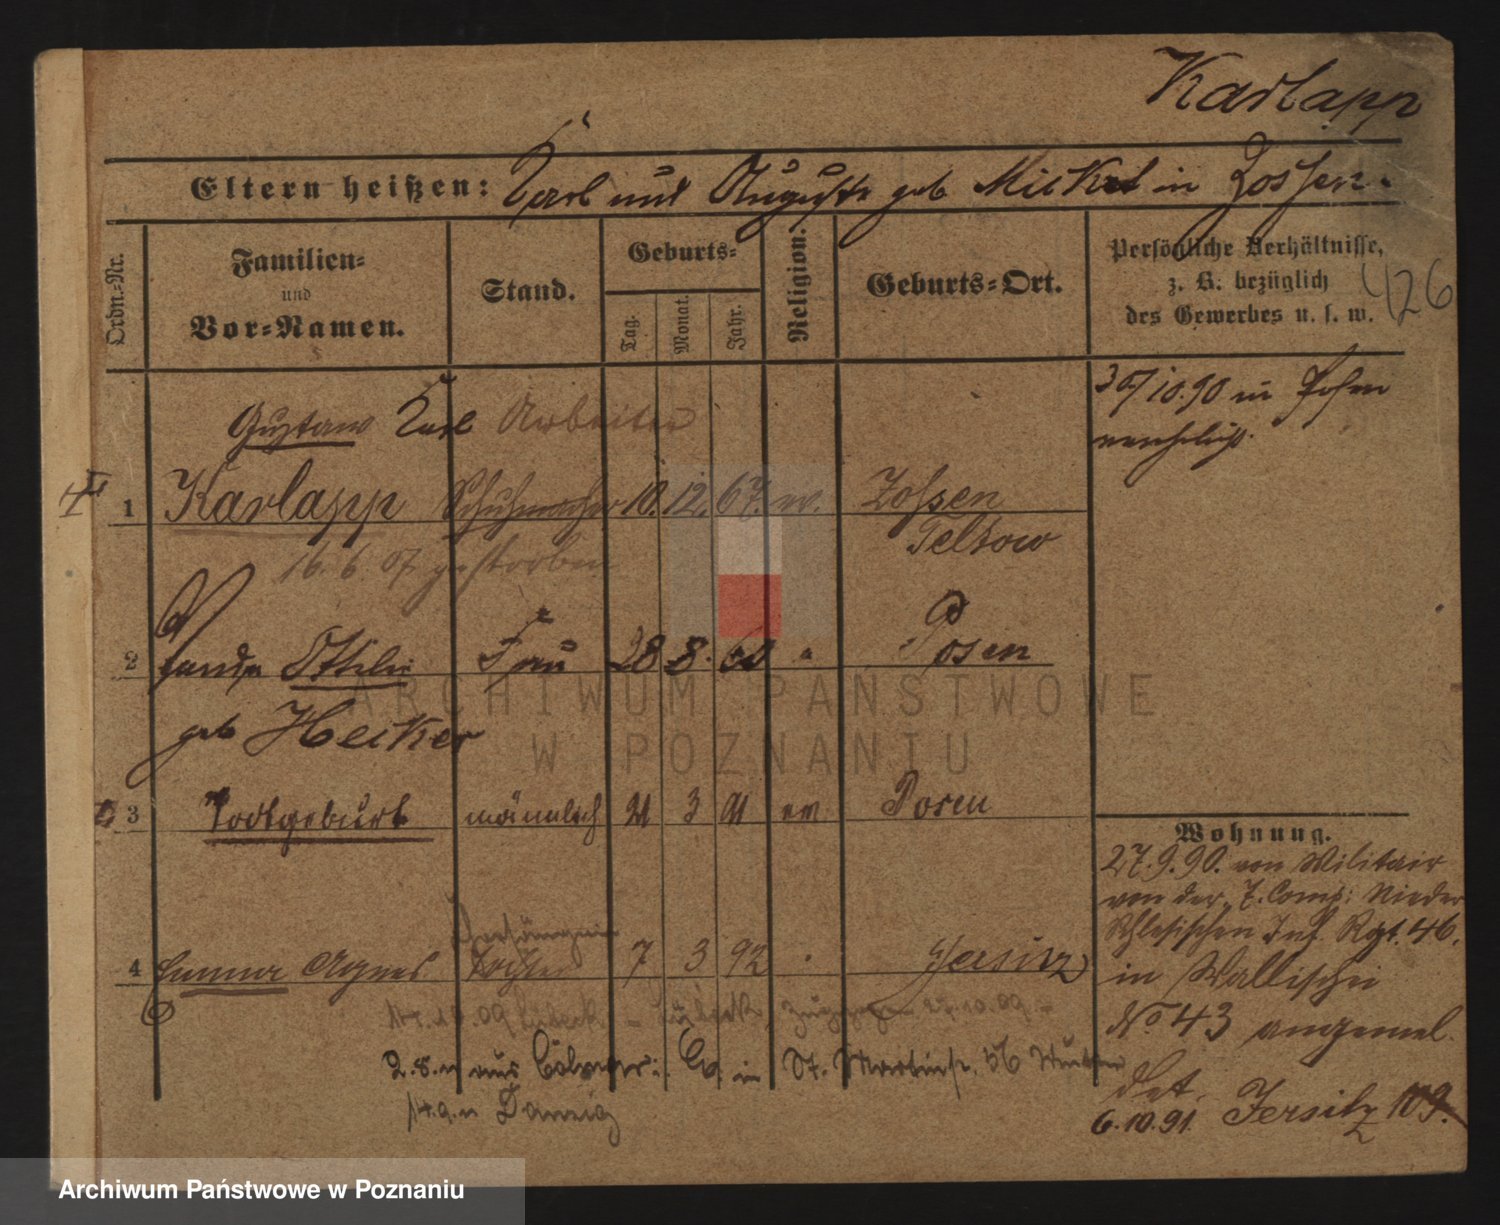 Karlapp
Eltern heißen: Karl und Auguste geb Mickel in Zossen.
Ordn.-Nr.
Familien-
und
Vor-Namen.
Stand.
Geburts-
Tag.
Monat.
Jahr.
Religion.
Geburts-Ort.
Persönliche Verhältnisse,
z. B: bezüglich
des Gewerbes u. s. w.
426
30/10.90 in Posen
verehelicht.
Gustav Karl Arbeiter
1 Karlapp Schuhmacher 10. 12. 67. ev. Zossen
Teltow
16. 6. 07 gestorben
2 Ottilie Frau 28 8. 60 " Posen
geb Heiker
3 Todtgeburt männlich 21 3 91 ev. Posen
4 Emma Agnes Tochter 7 3 92 Jersitz
2.8.11 aus in St. Martinstr. 56
14.9.11 Danzig
Wohnung.
27.9.90. von Militair
von der 7. Comp: Nieder
Schlesischen Inf. Rgt. 46.
in Wallischei
No 43 angemel
det.
6.10.91. Jersitz 109.
ARCHIWUM PAŃSTWOWE
W POZNANIU
Archiwum Państwowe w Poznaniu